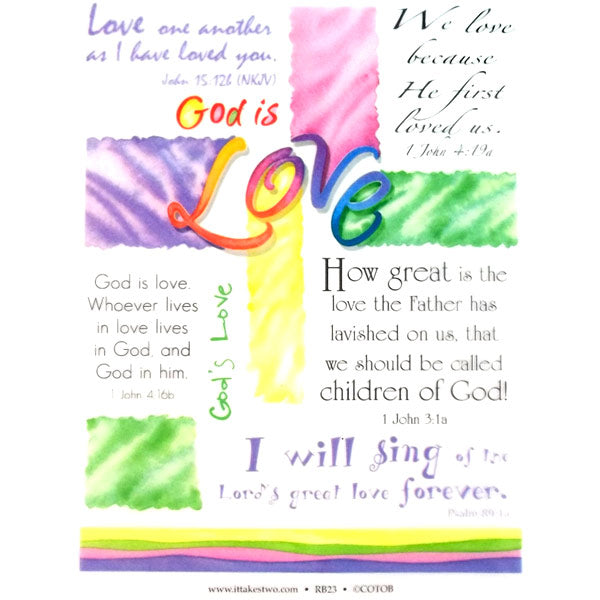 Love one another
as I have loved you.
John 15:12b (NKJV)
We love
because
He first
loved us.
1 John 4:19a
God is
Love
God is love.
Whoever lives
in love lives
in God, and
God in him.
1 John 4:16b
God's Love
How great is the
love the Father has
lavished on us, that
we should be called
children of God!
1 John 3:1a
I will sing of the
Lord's great love forever.
Psalm 89:1a
www.ittakestwo.com • RB23 • ©COTOB